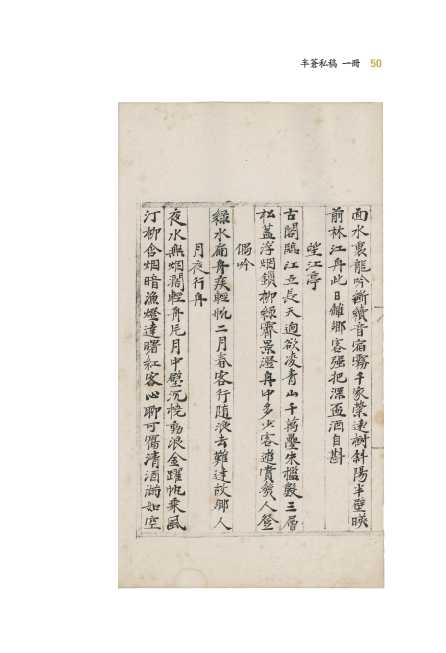 半蒼私稿 一冊 50
面水裏龍吟斷續音宿霧千家蒙遠樹斜陽半壁映
前林江舟此日離鄉客强把深盃酒自斟
望江亭
古閣臨江立長天逈欲凌青山千萬疊朱檻數三層
松蓋浮烟鎖柳絲霽景澄舟中多少客遊賞幾人登
偶吟
綠水扁舟疾輕帆二月春客行隨浪去難達故鄉人
月夜行舟
夜水無烟濶輕舟月中壁沉橈動浪金躍帆乘風
汀柳含烟暗漁燈達曙紅客心聊可慰清酒滿如空